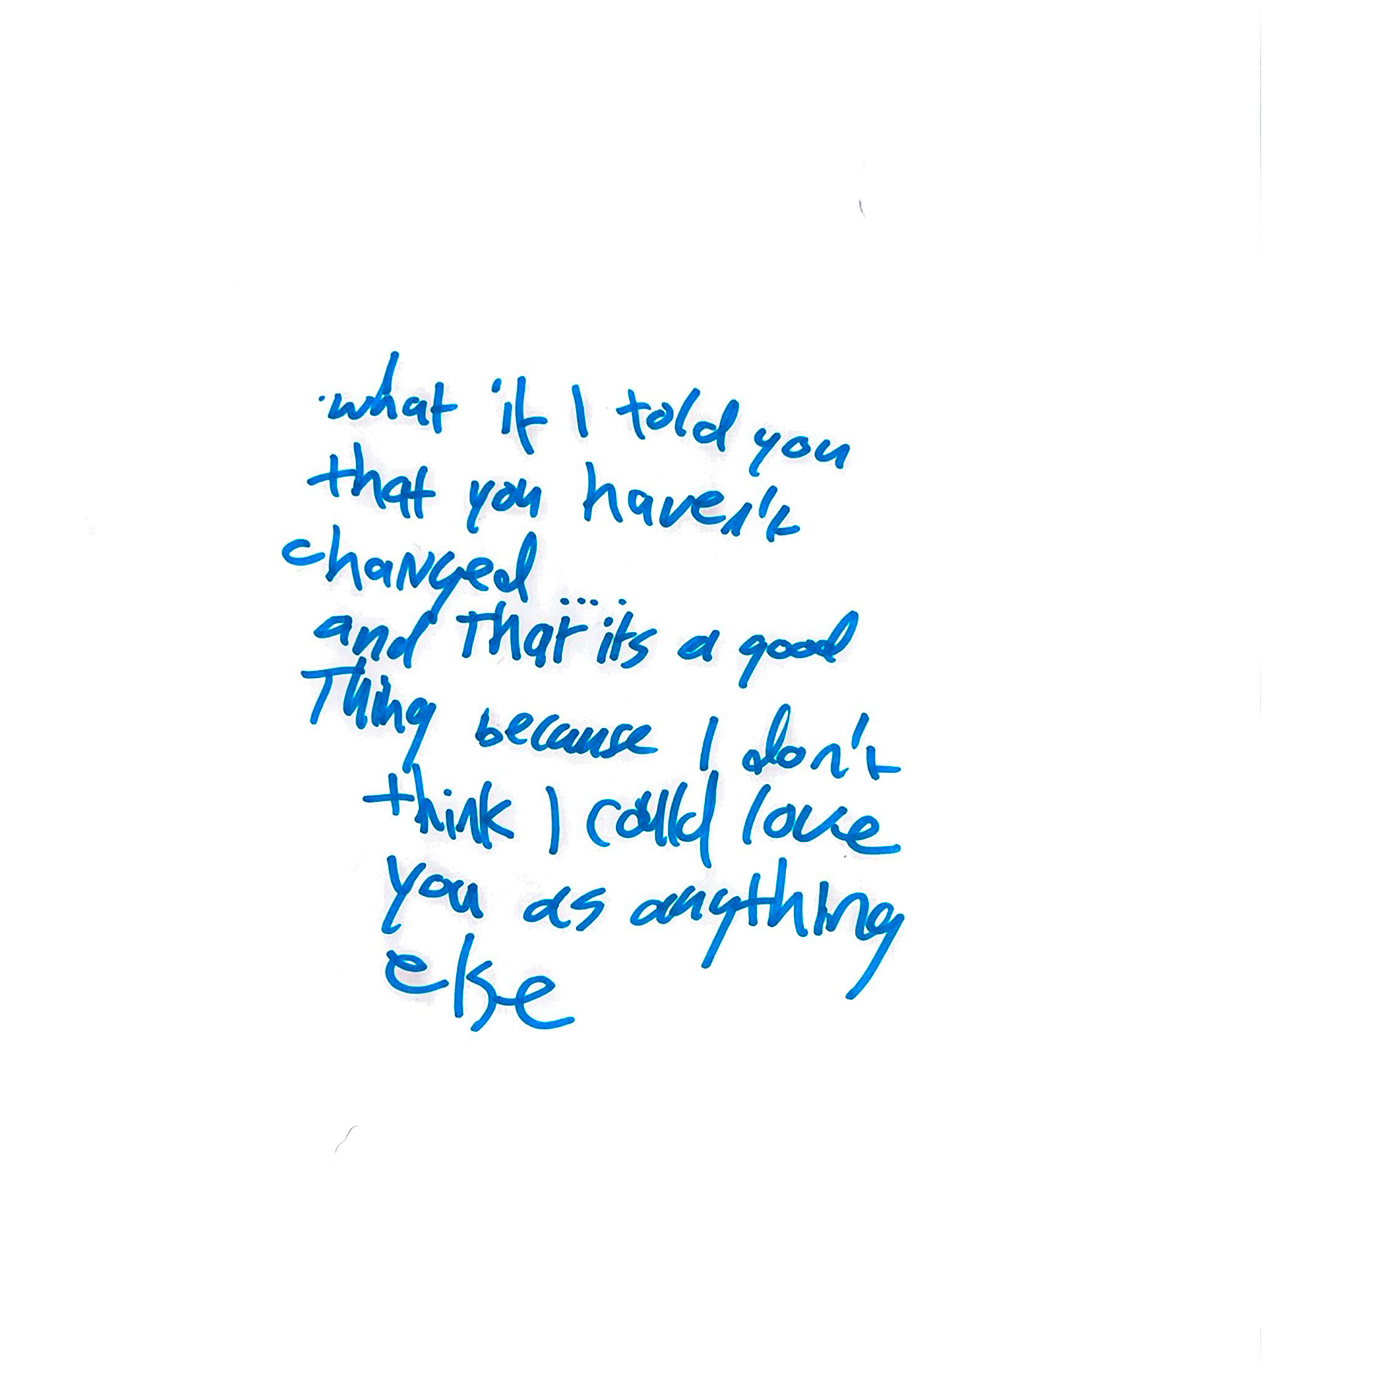 what if I told you
that you haven't
changed....
and That its a good
Thing because I don't
think I could love
you as anything
else